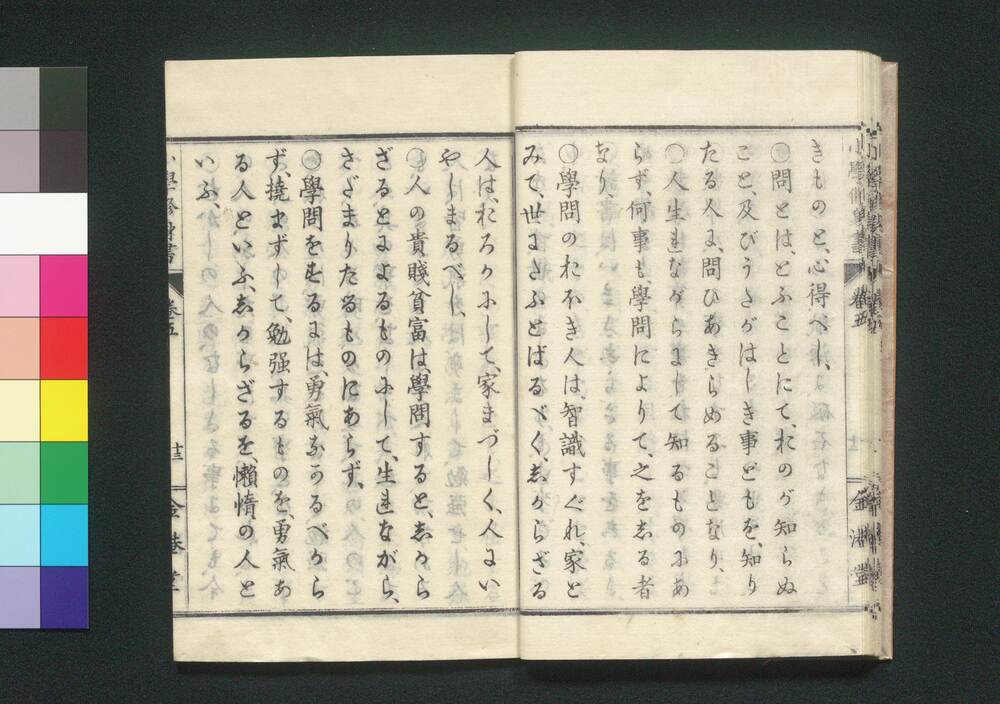 きものと、心得べし、
○問とは、とふことにて、おのが知らぬ
こと、及びうたがはしき事どもを、知り
たる人に、問ひあきらめることなり、
○人生れながらにして知るものにあ
らず、何事も、學問によりて、之を志る者
なり、
○學問のおほき人は、智識すぐれ、家と
みて、世にたふとばるべく、志からざる
人は、おろかにして、家まづしく、人にい
やしまるべし、
○人の貴賤貧富は、學問すると、志から
ざるとによるものにして、生れながら、
さだまりたるものにあらず、
○學問をするには、勇氣なかるべから
ず、撓まずして、勉强するものを、勇氣あ
る人といふ、志からざるを、懶惰の人と
いふ、
小學修身書
卷五
十三
金港堂